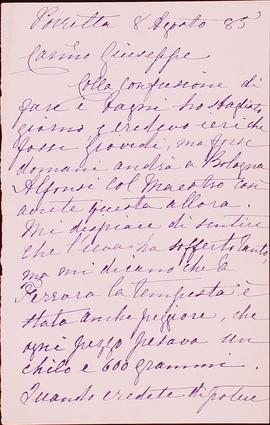 Porretta 8 Agosto 85
Carmo Giuseppe
Colla confusione di
fare i bagni ho sbagliato
giorno e credevo ieri che
fosse Giovedi, ma forse
domani andrà a Bologna
Alfonsi col Maestro così
avrete questa allora.
Mi despiace di sentire
che l'uva ha sofferto tanto,
ma mi dicano che a
Ferrara la tempesta è
stata anche peggiore, che
ogni pezzo pesava un
chilo e 600 grammi.
Quando credete di poter